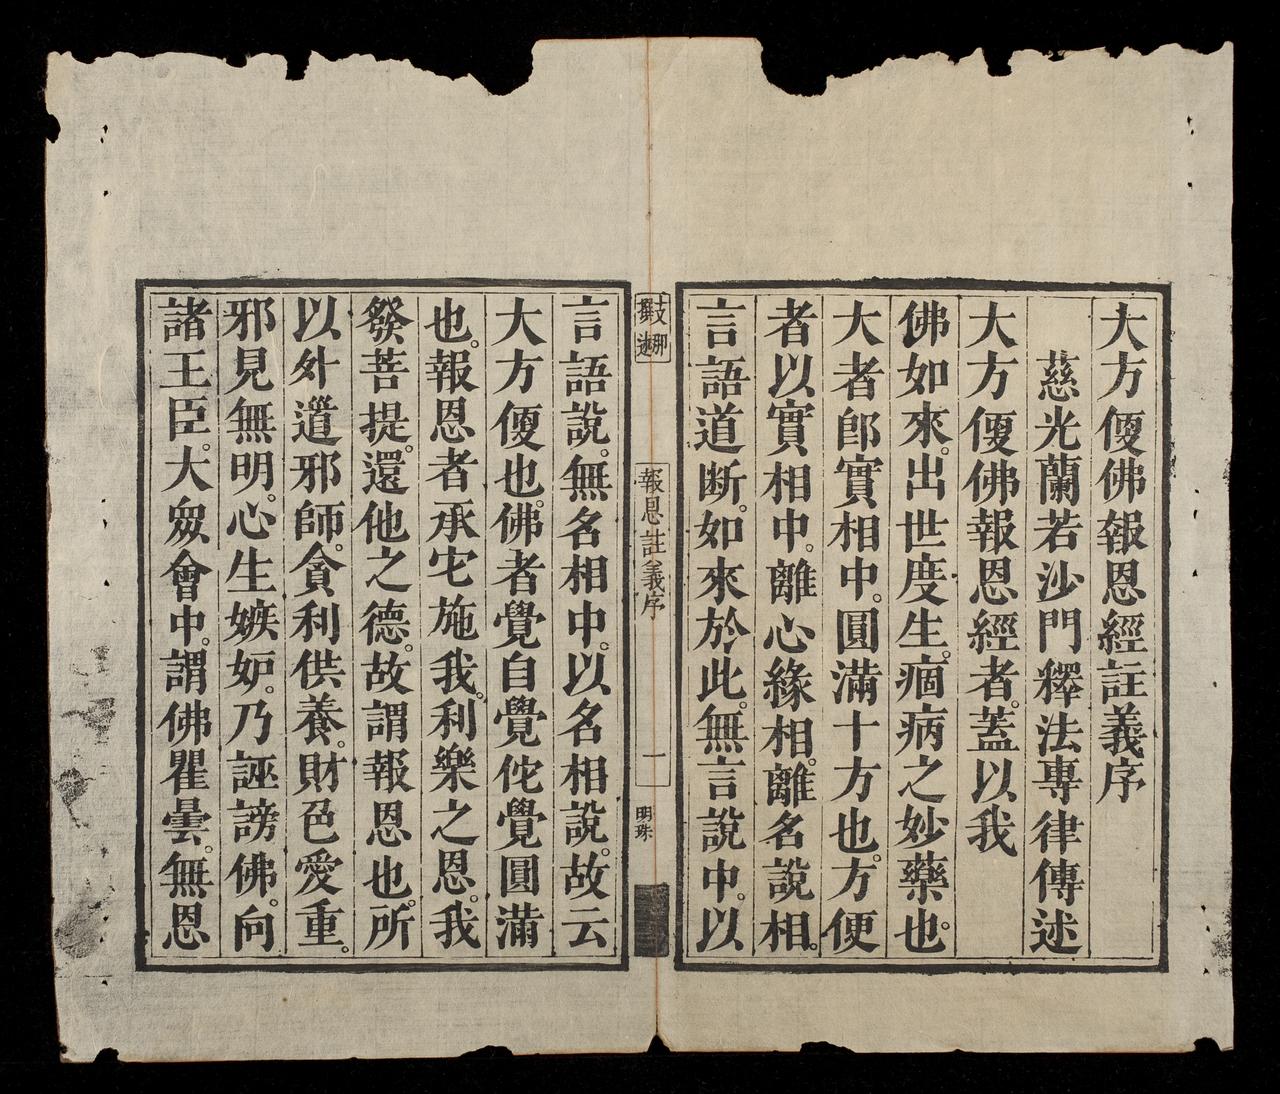 大方便佛報恩經註義序
慈光蘭若沙門釋法專律傳述
大方便佛報恩經者。蓋以我
佛如來。出世度生。痼病之妙藥也。
大者卽實相中。圓滿十方也。方便
者以實相中。離心緣相。離名說相。
言語道断。如來於此。無言說中。以
支那撰述
報恩註義序
一
明珠
言語說。無名相中。以名相說。故云
大方便也。佛者覺自覺佗覺圓滿
也。報恩者承它施我。利樂之恩。我
發菩提。還他之德。故謂報恩也。所
以外遵邪師。貪利供養。財色愛重。
邪見無明。心生嫉妒。乃誣謗佛。向
諸王臣。大衆會中。謂佛瞿曇。無恩